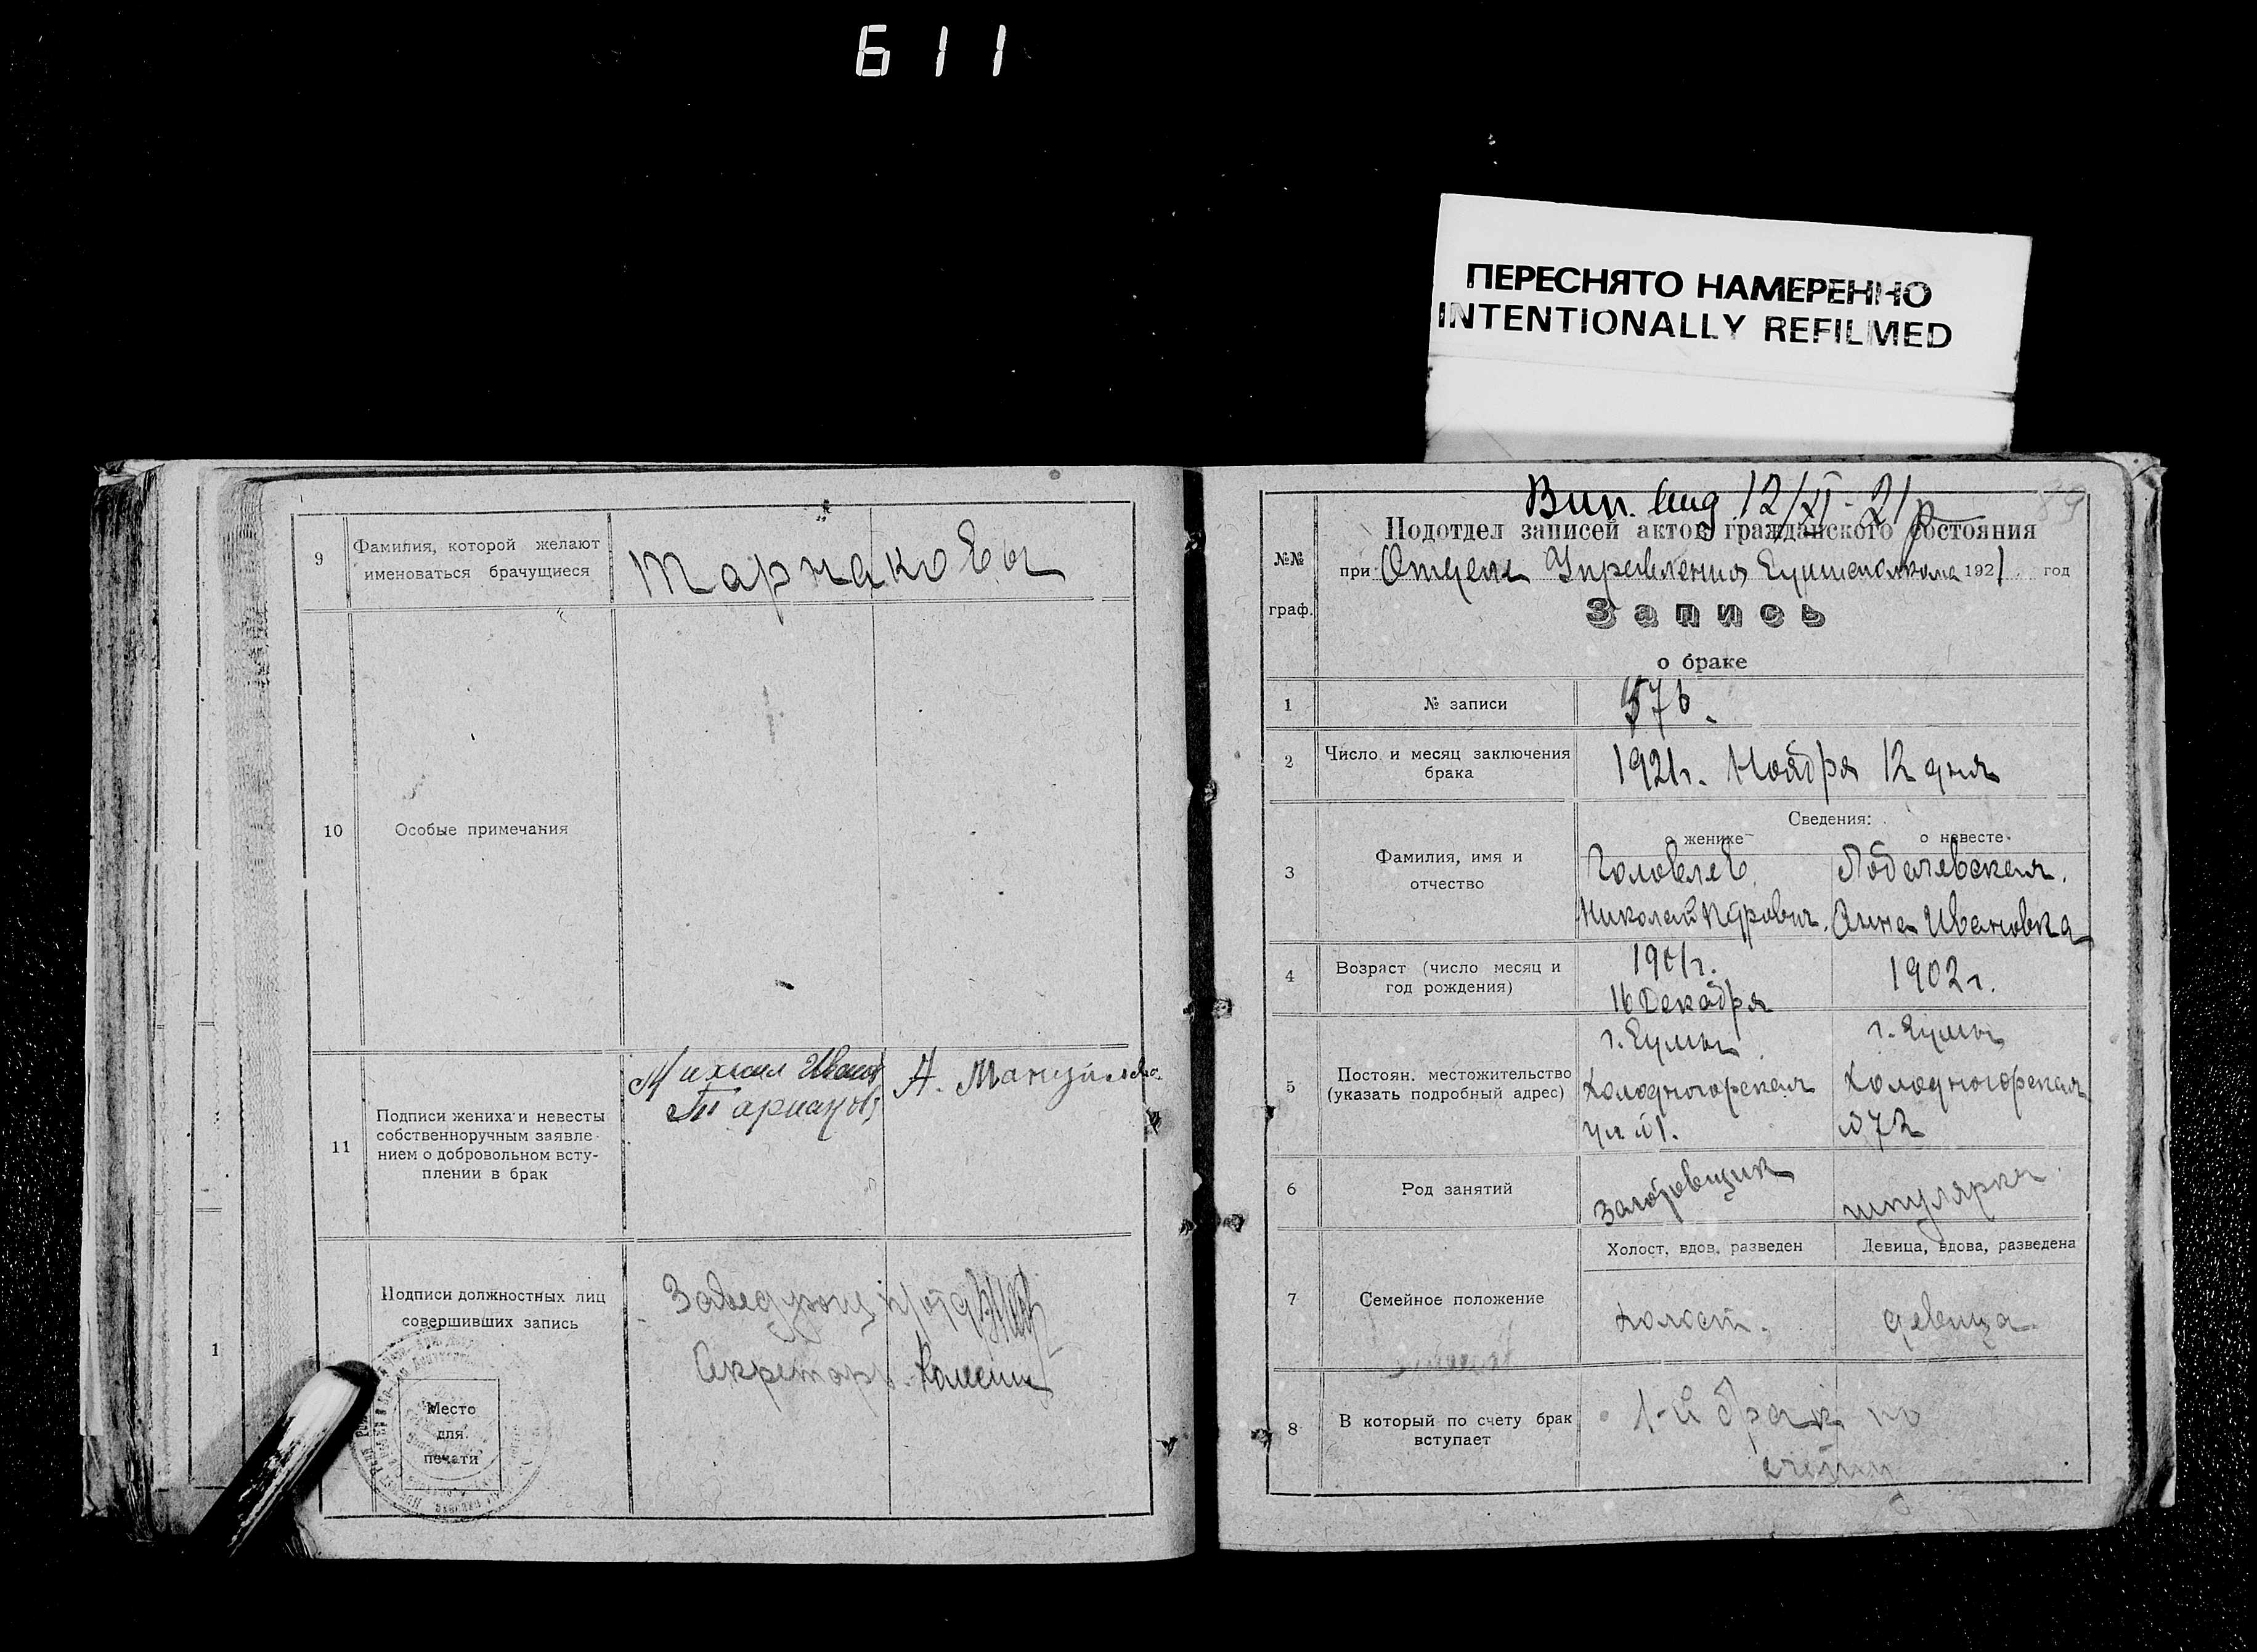 611
ПЕРЕСНЯТО НАМЕРЕННО
INTENTIONALLY REFILMED
9
Фамилия, которой желают
именоваться брачущиеся
Тарнаковы
10
Особые примечания
11
Подписи жениха и невесты
собственноручным заявле-
нием о добровольном всту-
плении в брак
Михаил
А.
Подписи должностных лиц
совершивших запись
Заведующ
Секретарь
Место
для
печати
1
89
12/XI 21р
Подотдел записей актов гражданского состояния
№№
граф.
при Отделе Управления 1921 год
Запись
о браке
1
№ записи
576.
2
Число и месяц заключения
брака
1921г. Ноября 12 дня
3
Фамилия, имя и
отчество
Сведения:
о женихе
о невесте
Головлев
Николай Петрович.
Анна Ивановна
4
Возраст (число месяц и
год рождения)
1901г.
16 Декабря
1902г.
5
Постоян. местожительство
(указать подробный адрес)
г. Сумы
Холодногорская
ул №1.
г. Сумы
Холодногорская
№72
6
Род занятий
заготовщик
шпулярка
7
Семейное положение
Холост, вдов, разведен
Девица, вдова, разведена
холост.
девица
8
В который по счету брак
вступает
1-й брак по
счету